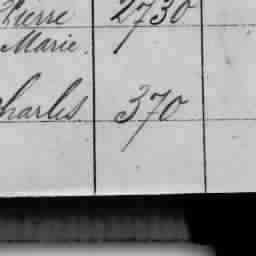 Pierre 2730
Marie.
Charles 370